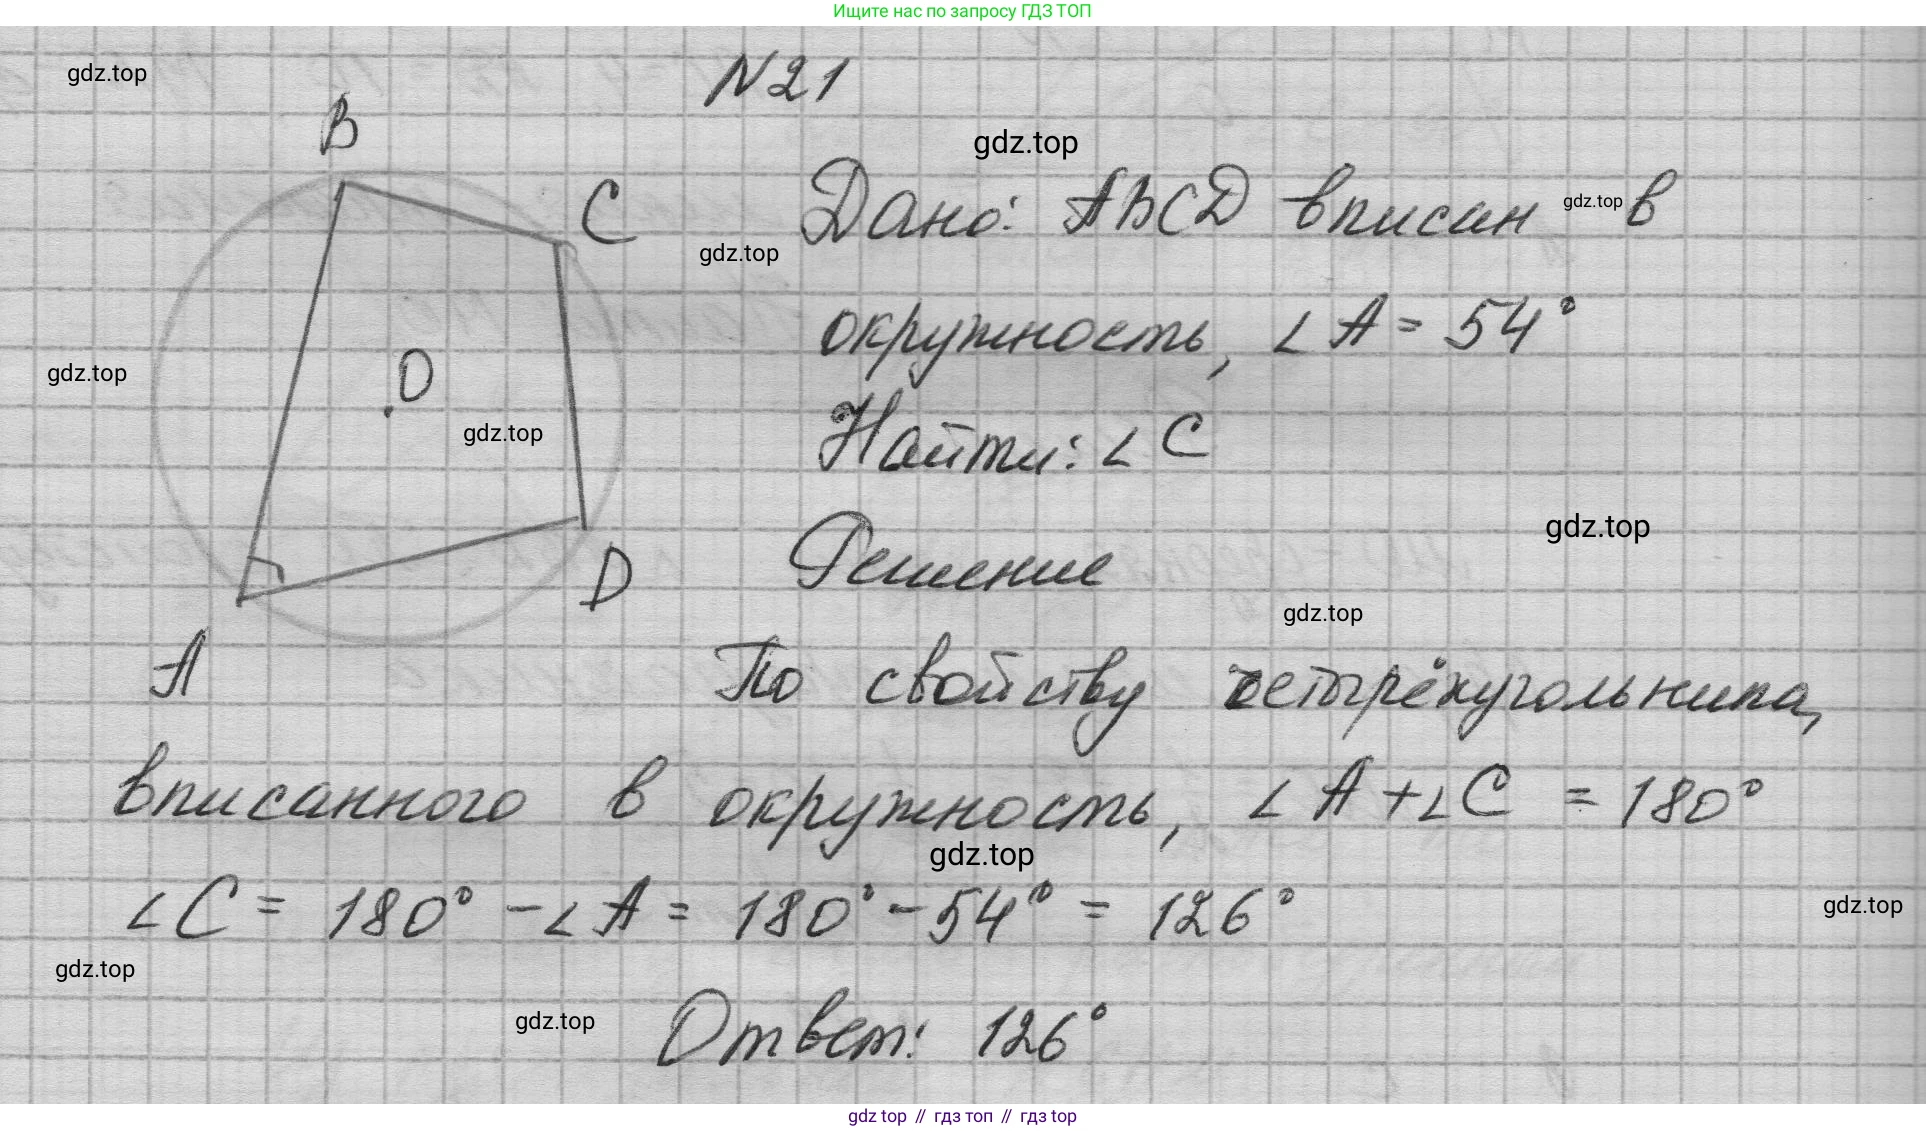 Ищите нас по запросу ГДЗ ТОП
gdz.top
N21
B
gdz.top
C
Дано: ABCD вписан gdz.top в
gdz.top
окружность, ∠A = 54°
gdz.top
O
gdz.top
Найти: ∠C
gdz.top
Решение
D
gdz.top
A
По свойству четырёхугольника,
вписанного в окружность, ∠A + ∠C = 180°
gdz.top
∠C = 180° - ∠A = 180° - 54° = 126°
gdz.top
gdz.top
gdz.top
Ответ: 126°
gdz top // гдз топ // гдз top